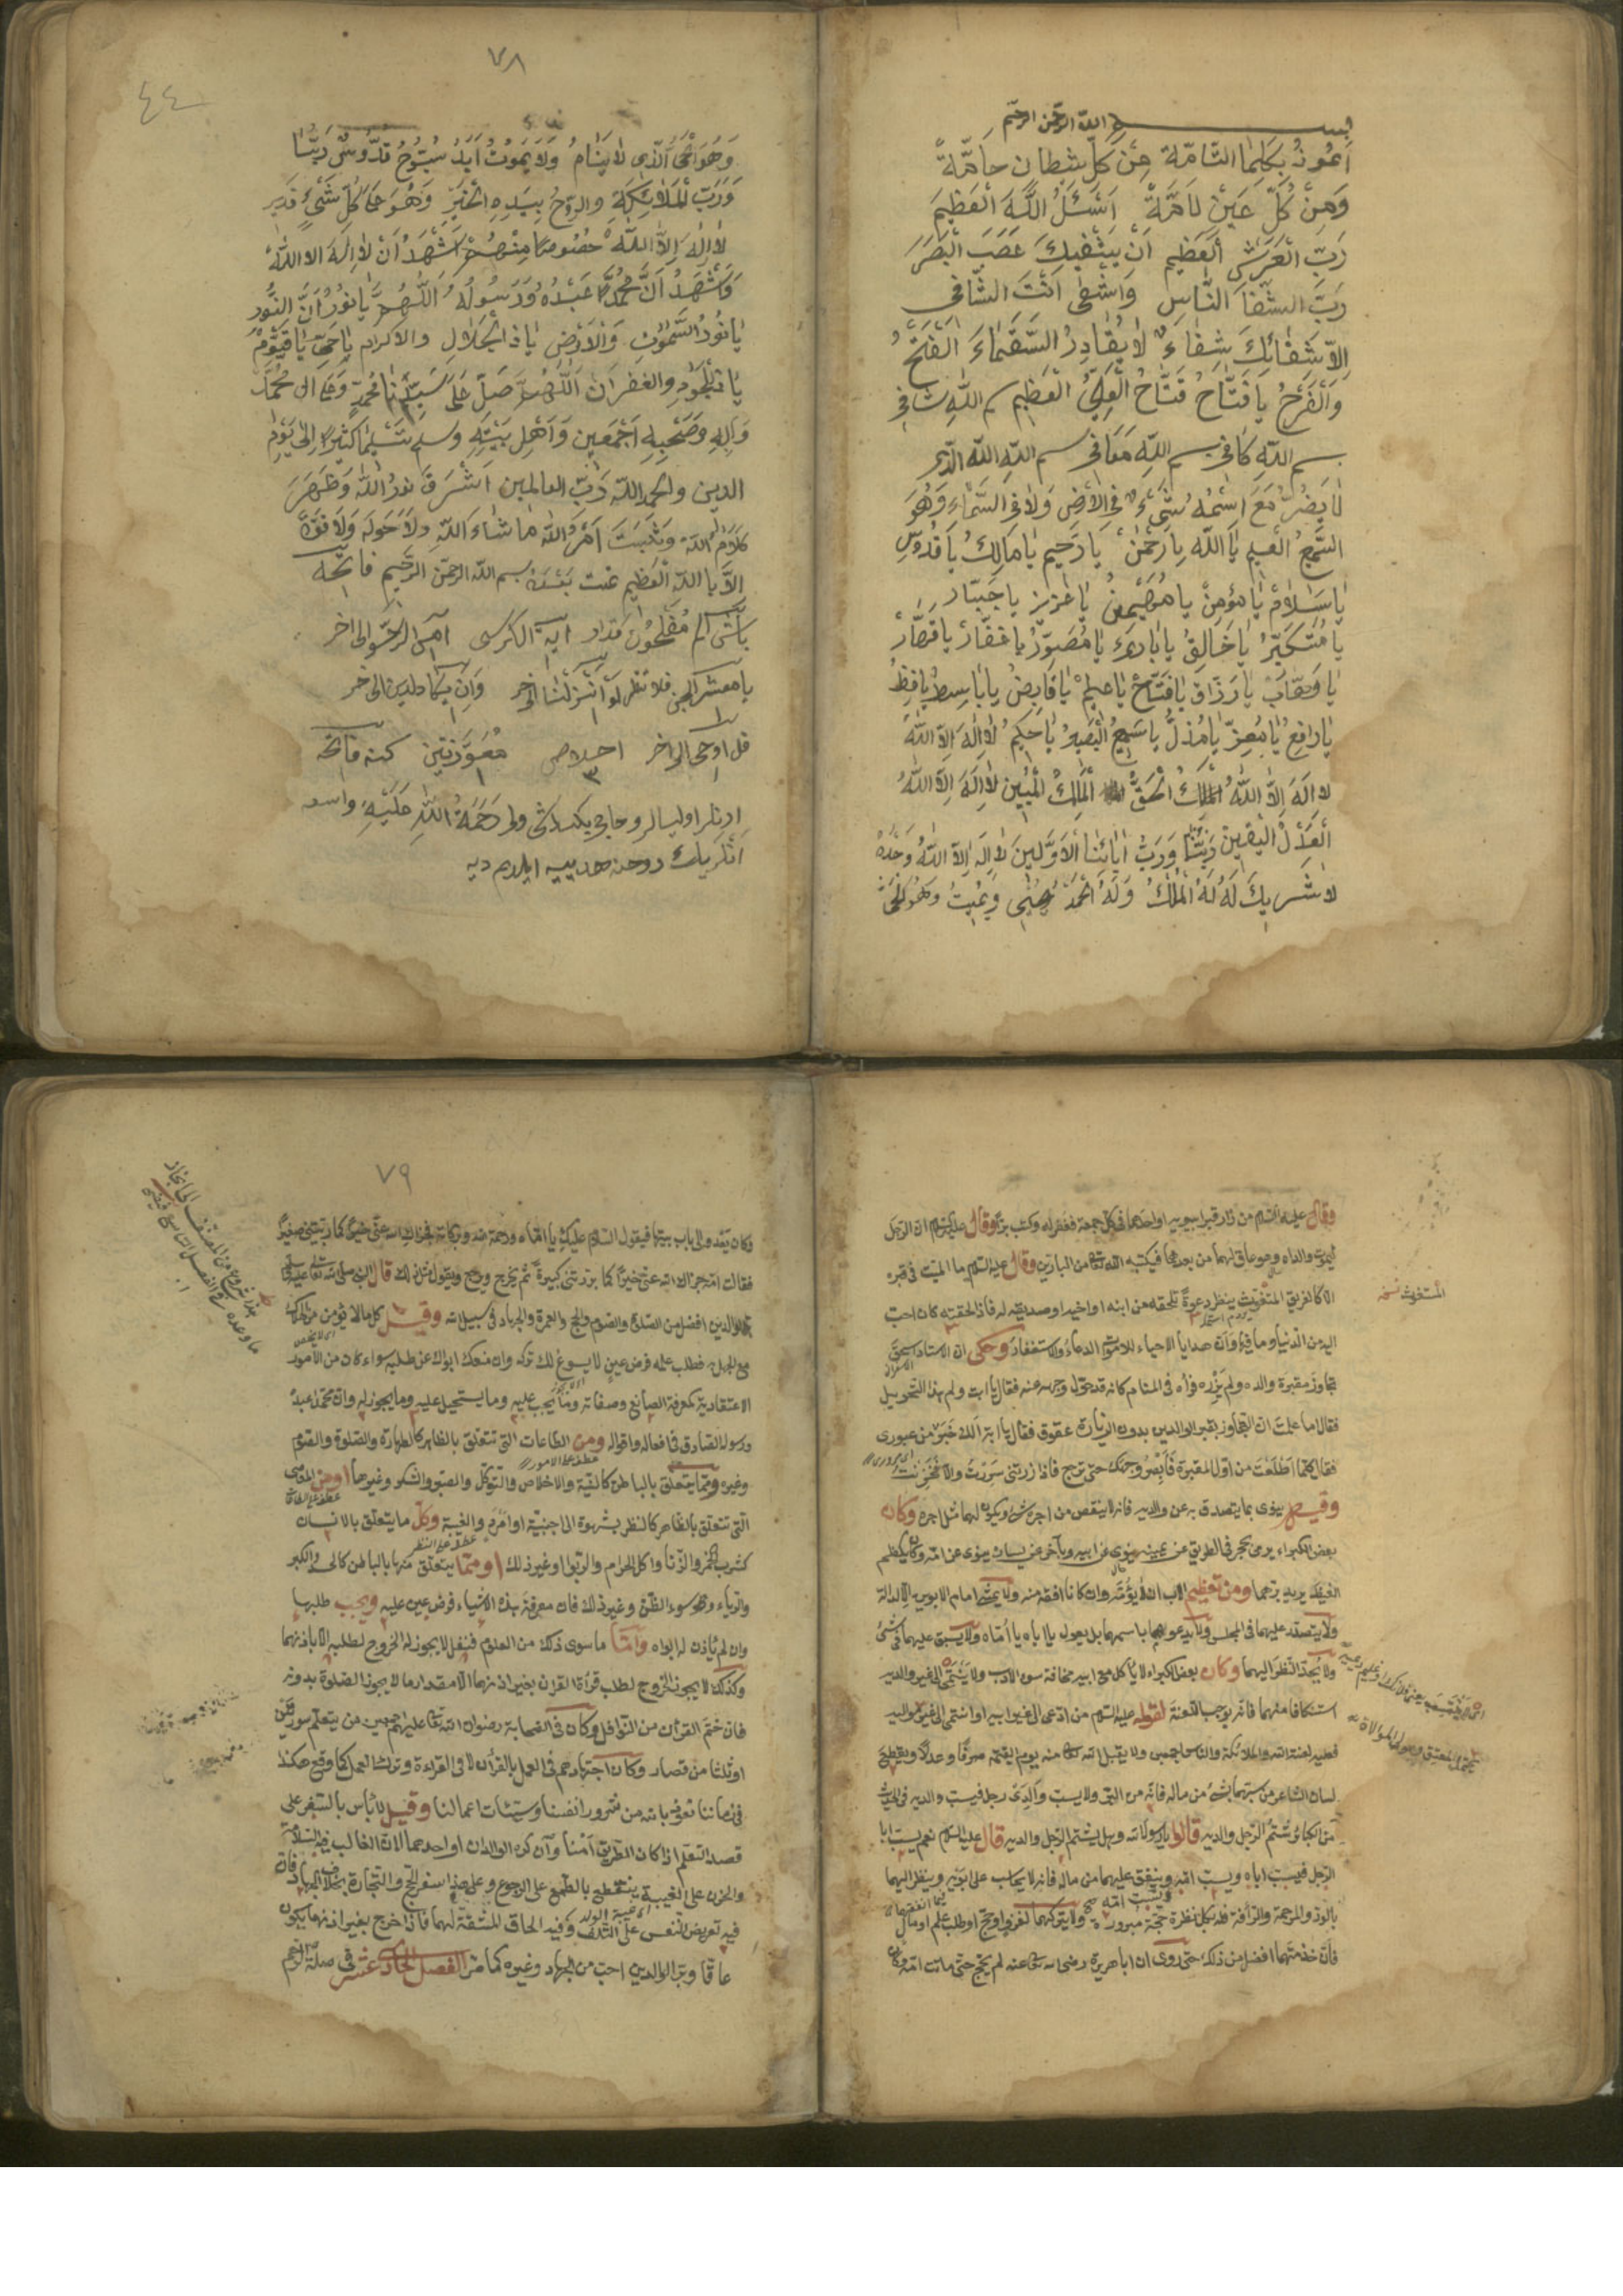 بسم الله الرحمن الرحيم
اَعُوذُ بِكَلِمَا التَّامَّة مِنْ كلّ شيطان حامّة
وَمِنْ كُلِّ عَيْنٍ لَامَّةً اَسْئَلُ اللّٰهَ الْعَظِيمَ
رَبِّ الْعَرْشِ الْعَظِيمِ اَنْ يَشْفِيكَ عَصَبَ الْبَصَرَ
رَبَّ الشِّفَا النَّاسِ وَاشْفِى اَنْتَ الشَّافِى
اِلَّا شِفَائِكَ شِفَاءً لَا يُغَادِرُ السَّقَمَاءَ الْفَتْحُ
وَالْفَرَحُ يَا فَتَّاحُ فَتَّاحُ الْعَلِىُّ الْعَظِيمِ بسم اللّٰه شافى
بسم اللّٰه كافى بسم اللّٰه معافى بسم اللّٰه اللّٰه الذى
لَا يَضُرُّ مَعَ اسْمُهُ شَىْءٌ فِى الْاَرْضِ وَلَا فِى السَّمَاءِ وَهُوَ
السَّمِيعُ العليم يَا اَللّٰه يا رَحْمٰن يَا رَحِيم يَا مَالِكُ يَا قُدُّوسِ
يَا سَلَامُ يَا مُؤْمِنْ يَا مُهَيْمِنْ يَا عَزِيز يا جَبَّار
يَا مُتَكَبِّرْ يَا خَالِقُ يَا بَارِئ يَا مُصَوِّرُ يا غَفَّار يَا قَهَّارُ
يَا وَهَّابْ يَا رَزَّاق يَا فَتَّاحْ يَا عليمْ يَا قَابِضُ يَا بَاسِطُ
يَا رَافِع يَا مُعِزّ يَا مُذِلُّ يَا سَمِيعُ الْبَصِيرُ يَا حَكِيمُ لَا اِلٰهَ اِلَّا اللّٰهُ
لا اِلٰهَ اِلَّا اللّٰهُ الْمَلِكُ الْحَقُّ الْمَلِكُ الْمُبِينِ لَا اِلٰهَ اِلَّا اللّٰهُ
الْعَدْلُ الْيَقِينَ رَبُّنَا وَرَبُّ اٰبَائِنَا الْاَوَّلِينَ لَا اِلٰهَ اِلَّا اللّٰهُ وَحْدَهُ
لَا شَرِيكَ لَهُ لَهُ الْمُلْكُ وَلَهُ الْحَمْدُ يُحْيِى وَيُمِيتُ وَهُوَ الْحَىُّ
٧٨
٤٤
وَهُوَ الْحَىُّ الَّذِى لَا يَنَامُ وَلَا يَمُوتُ اَبَدُ سُبُّوحُ قُدُّوسٌ رَبُّنَا
وَرَبُّ الْمَلَائِكَةِ والرّوحُ بِيَدِهِ الْخَيْرِ وَهُوَ عَلَى كُلِّ شَىْءٍ قَدِير
لَا اِلٰهَ اِلَّا اللّٰهُ خُصُوصًا مِنْهُمْ اَشْهَدُ اَنْ لَا اِلٰهَ الا اللّٰهُ
وَاَشْهَدُ اَنَّ مُحَمَّدًا عَبْدُهُ وَرَسُولُهُ اَللّٰهُمَّ يَا نُورُ النُّور
يَا نُورُ السَّمٰوَاتِ وَالْاَرْضِ يَا ذَا الْجَلَالِ والاكرام يَا حَىُّ يَا قَيُّومْ
والغفران اَللّٰهُمَّ صَلِّ عَلَى سَيِّدِنَا مُحَمَّدٍ وَعَلَى ال مُحَمَّدْ
وَاٰلِهِ وَصَحْبِهِ اَجْمَعِين وَاَهْلِ بَيْتِهِ وسلم تَسْلِيمًا كَثِيرًا اِلٰى يَوْمِ
الدين والحمد للّٰه رَبّ العالمين اَشْرَقَ نُورُ اللّٰه وَظَهَرَ
كَلَامُ اللّٰه وَثَبَتَ اَمْرُ اللّٰه مَا شَاءَ اللّٰهِ وَلَا حَولَ وَلَا قُوَّةَ
اِلَّا بِاللّٰهِ الْعَظِيم تمت بسم الله الرحمن الرحيم فاتحه
الم مُفْلِحُون آية الكرسى آمن الرسول الى اخر
يا معشر الجن لَوْ اَنْزَلْنَا الى اخر وَاِنْ يكاد الى اخر
قل اوحى الى اخر اخلاص مُعَوِّذَتَيْن فاتحه
٣
رَحْمَةُ اللّٰهِ عَلَيْهِ واسعه
وقال عليه السلام من زار قبر ابويه او احدهما فى كل جمعة غفر له وكتب برًّا وقال عليه السلام ان الرجل
ليموت والداه وهو عاق لهما من بعدهما فيكتبه الله تعالى من البارّين وقال عليه السلام ما الميت فى قبره
الا كالغريق المتغوث ينظر دعوةً تلحقه من ابنه او اخيه او صديقه له فاذا لحقته كان احب
المستغوث نسخه
اليه من الدنيا وما فيها وانّ هدايا الاحياء للاموات الدعاءُ والاستغفار وحكى ان الاستاد
تجاوز مقبرة والده ولم يَزُره فرأه فى المنام كانه قد حوّل وجهه عنه فقال يا ابت ولم هذا التحويل
فقال اما علمت ان التجاوز بقبر الوالدين بدون الزيارة عقوق فقال يا ابة اَلك خَبَر من عبورى
فقال كلما اطّلعت من اوّل المقبرة فأبْصِرُ وجهك حتى ترجع فاذا زرتنى سررت والا
وقيل ينوى بما يتصدق به عن والديه فانه لا ينقص من اجره شئ ويكون لهما مثل اجره وكان
بعض الكبراء يرمى بحجر فى الطريق عن يمينه ينوى عن ابيه وبآخر عن يساره ينوى عن امّه وكان يكظم
الغيظ يريد برّهما ومن تعظيم الاب ان كانا افقه منه ولا يمشى امام الابوين الا لدلالة
ولا يتصدّر عليهما فى المجلس ولا يدعوهما باسمهما بل يقول يا اباه يا اُمّاه ولا يسبق عليهما فى شئ
ولا يُحدّ النّظر اليهما وكان بعض الكبراء لا يأكل مع ابيه مخافة سوء الادب ولا يَنْتَمى الى غير والديه
استنكافا منهما فانه يوجب اللعنة لقوله عليه السلام من ادعى الى غير ابيه او انتمى الى غير مواليه
فعليه لعنة الله والملائكة والناس اجمعين ولا يقبل الله منه يوم القيمة صرفًا وعدلًا ويقطع
لسان الشاعر من سبّهما بشئ من ماله فانّه من البرّ ولا يسب والِدَىْ رجل فيسب والديه فى الحديث
من الكبائر شتمُ الرّجل والديه قالوا يا رسول الله وهل يشتم الرّجل والديه قال عليه السلام نعم يسبّ ابا
الرجل فيسب اباه ويسبّ امّه وينفق عليهما من ماله فانه لا يحاسب على ابويه وينظر اليهما
بالودّ والرحمة والرأفة فله بكل نظرة حجّة مبرورة ولا يتركهما لغزو او حج او طلب علم او مال
فانّ خدمتهما افضل من ذلك حتى روى ان ابا هريرة رضى الله عنه لم يحج حتى ماتت امّه وكان
٧٩
وكان يغدو الى باب بيتها فيقول السلام عليكِ يا امّاه ورحمة الله وبركاته جزاك الله عنّى خيرًا كما ربيتنى صغيرًا
فقالت انت جزاك الله عنّى خيرًا كما بررتنى كبيرةً ثم يخرج ويرجع ويقول مثل ذلك قال النبى صلى الله تعالى عليه وسلم
برّ الوالدين افضل من الصلوة والصوم والحج والعمرة والجهاد فى سبيل الله وقيل كل ما لا يؤمن من الهلاك
مع الجهل فطلب علمه فرض عين لا يسوغ لك تركه وان منعك ابواك عن طلبه سواء كان من الامور
الاعتقادية كمعرفة الصانع وصفاته وما يجب عليه وما يستحيل عليه وما يجوز له وان محمّدا عبدُه
ورسوله الصادق فى افعاله واقواله ومن الطاعات التى تتعلق بالظاهر كالطهارة والصلوة والصوم
وغيره وممّا يتعلق بالباطن كالنيّة والاخلاص والتوكّل والصبر والشكر وغيرها او من المعاصى
التى تتعلق بالظاهر كالنظر بشهوة الى اجنبيّة او امْرَد والغيبة وكلّ ما يتعلّق بالانسان
كشرب الخمر والزّنا واكل الحرام والربوا وغير ذلك او ممّا يتعلق منها بالباطن كالحسد والكبر
والرياء وسوء الظنّ وغير ذلك فان معرفة هذه الاشياء فرض عين عليه ويجب طلبها
وان لم يأذن له ابواه وامّا ما سوى ذلك من العلوم فنفل لا يجوز له الخروج لطلبه الا باذنهما
وكذلك لا يجوز الخروج لطلب قراءة القران بغير اذنهما الا مقدار ما لا يجوز الصلوة بدونه
فان ختم القرأن من النّوافل وكان فى الصحابة رضوان الله تعالى عليهم اجمعين من يتعلّم سورتين
او ثلثا من قصار وكان اجتهادهم فى العمل بالقرآن لا فى القراءة وترك العمل كما وقع هكذا
فى زماننا نعوذ بالله من شرور انفسنا وسيّئات اعمالنا وقيل لا بأس بالسّفر على
قصد التعلّم اذا كان الطريق اَمْنا وان كره الوالدان او احدهما لان الغالب فيه السّلامة
والحزن على الغيبة ينقطع بالطمع على الرجوع وعلى هذا سفر الحج والتجارة بخلاف الجهاد فانّ
فيه تعريض النّفس على التّلف وفيه الحاق المشقّة لهما فاذا خرج بغير اذنهما يكون
عاقّا وبرّ الوالدين احبّ من الجهاد وغيره كما مرّ الفصل الحادى عشر فى صلة الرحم